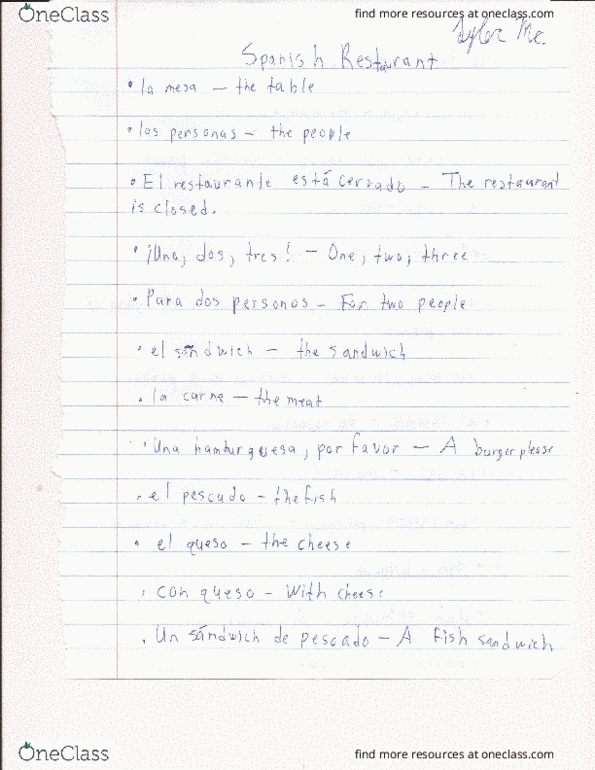 OneClass
find more resources at oneclass.com
Tyler Mc.
Spanish Restaurant
• la mesa – the table
• las personas – the people
• El restaurante está cerrado – The restaurant
is closed.
• ¡Uno, dos, tres! – One, two, three
• Para dos personas – For two people
• el sándwich – the sandwich
• la carne – the meat
• Una hamburguesa, por favor – A burger please
• el pescado – the fish
• el queso – the cheese
• con queso – With cheese
• Un sándwich de pescado – A fish sandwich
OneClass
find more resources at oneclass.com